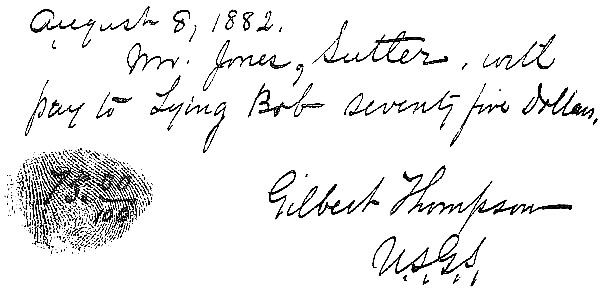 August 8, 1882.
Mr. Jones, Sutler, will
pay to Lying Bob seventy five Dollars.
75. 00/100
Gilbert Thompson
U.S.G.S.